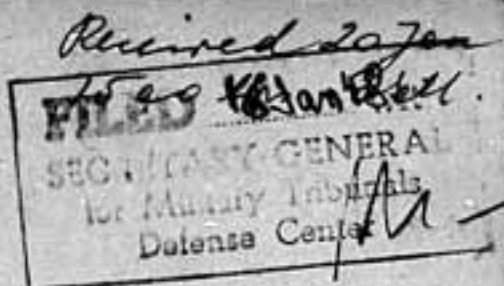 Received 20 Jan
FILED
SECRETARY GENERAL
for Military Tribunals
Defense Center